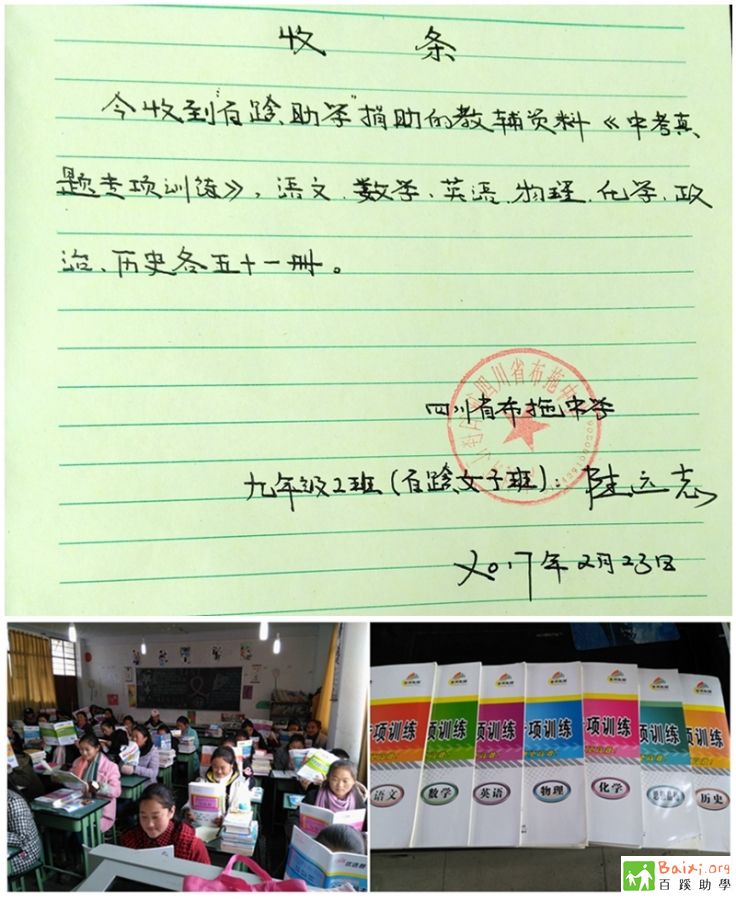 收 条
今收到"百蹊助学"捐助的教辅资料《中考真
题专项训练》，语文、数学、英语、物理、化学、政
治、历史各五十一册。
四川省布拖中学
九年级2班(百蹊女子班)：陆运志
2017年2月23日
四川省布拖中
项训练
语文
训练
数学
训练
英语
项训练
物理
项训练
化学
训练
训练
历史
Baixi.org
百蹊助學